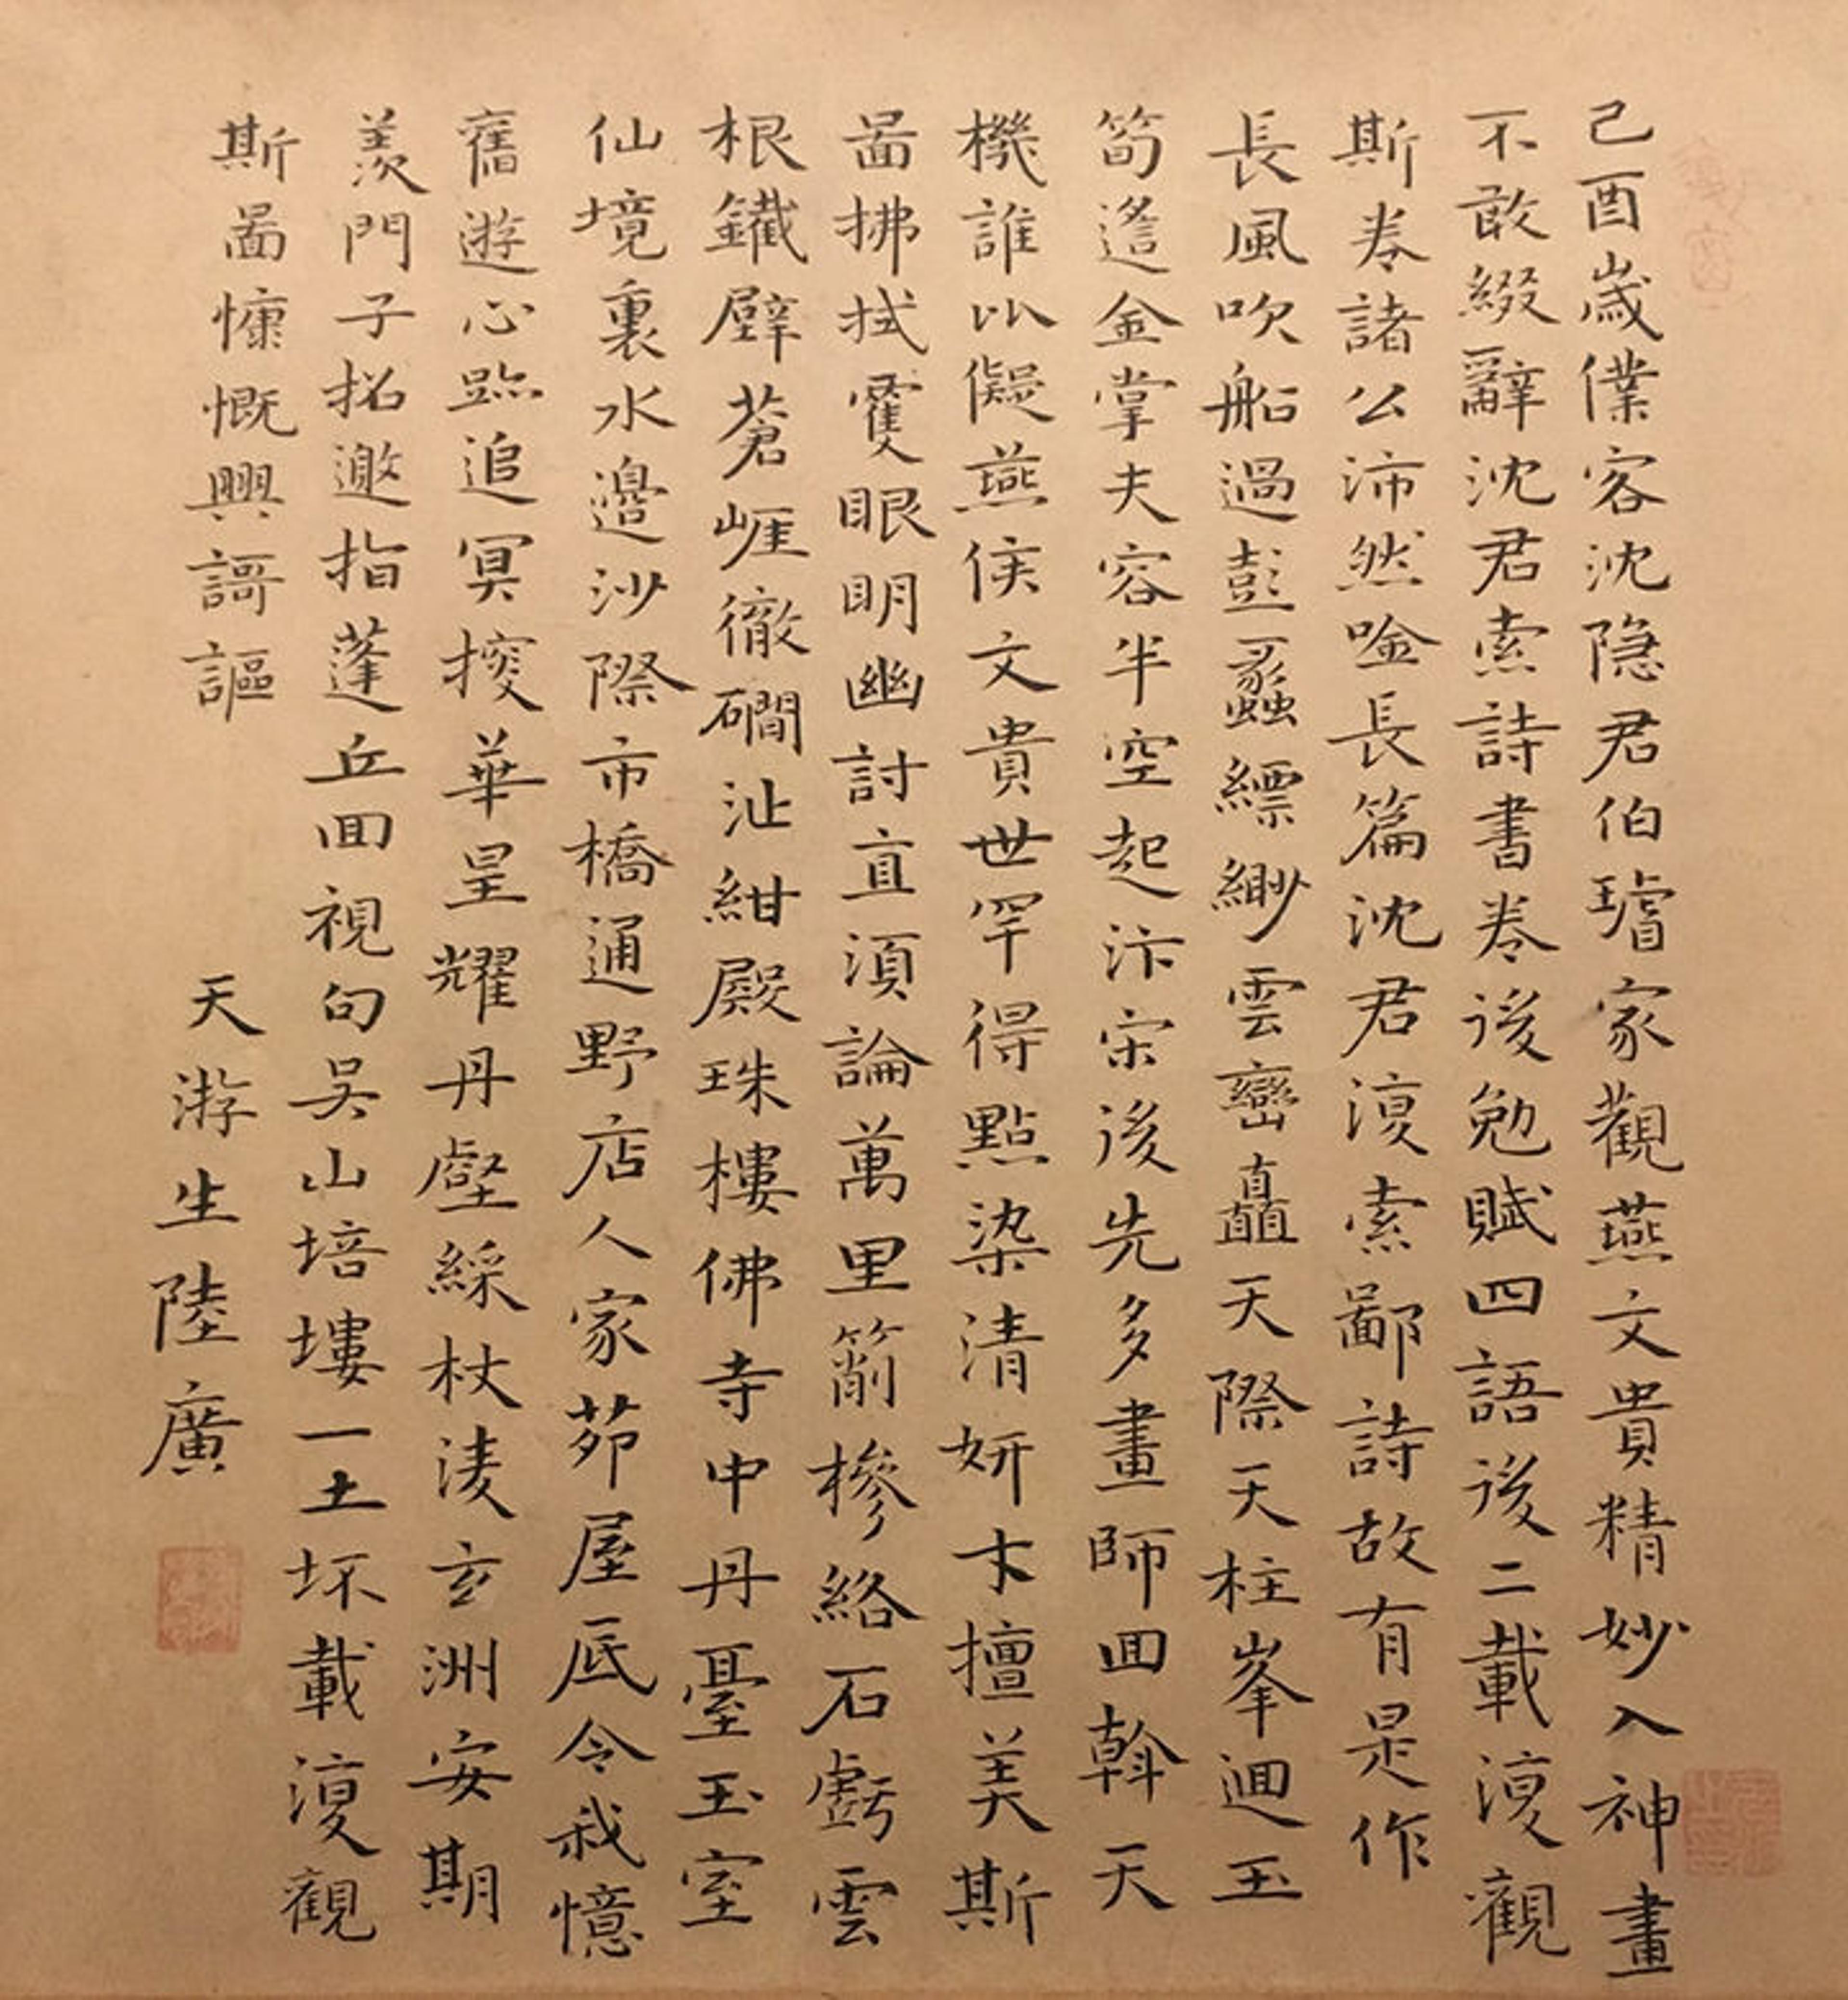 己酉歲僕客沈隐君伯璿家觀燕文貴精妙入神畫
不敢綴辭沈君索詩書卷後勉賦四語後二載澓觀
斯卷諸公沛然唫長篇沈君澓索鄙詩故有是作
長風吹船過彭蠡縹緲雲巒矗天際天柱峯迴玉
筍遙金掌夫容半空起汴宋後先多畫師回斡天
機誰以儗燕侯文貴世罕得點染清妍卞擅美斯
啚拂拭雙眼明幽討直須論萬里箾槮絡石虧雲
根鐵壁蒼崕徹磵沚紺殿珠樓佛寺中丹臺玉室
仙境裏水邊沙際市橋通野店人家茆屋底令我憶
舊遊心跡追冥搜華星耀丹壑綵杖淩玄洲安期
羨門子招邀指蓬丘回視句吳山培塿一土坏載澓觀
斯啚慷慨興謌謳
天游生陸廣